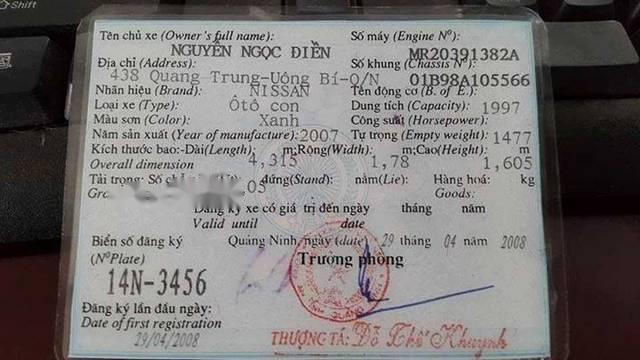 Tên chủ xe (Owner's full name): Số máy (Engine Nº):
NGUYỄN NGỌC ĐIỀN MR20391382A
Địa chỉ (Address): Số khung (Chassis Nº):
438 Quang Trung-Uông Bí-Q/N 01B98A105566
Nhãn hiệu (Brand): NISSAN Tên động cơ (B. of E.):
Loại xe (Type): Ôtô con Dung tích (Capacity): 1997
Màu sơn (Color): Xanh Công suất (Horsepower):
Năm sản xuất (Year of manufacture): 2007 Tự trọng (Empty weight): 1477
Kích thước bao:-Dài(Length), m;Rộng(Width), m;Cao(Height), m
Overall dimension 4,315 1,78 1,605
Tải trọng: Số 05 đứng(Stand): nằm(Lie): Hàng hoá: kg
Goods:
Đăng ký xe có giá trị đến ngày tháng năm
Valid until date
Biển số đăng ký Quảng Ninh, ngày (date) 29 04 năm 2008
(NºPlate) Trưởng phòng
14N-3456
Đăng ký lần đầu ngày:
Date of first registration
29/04/2008 THƯỢNG TÁ: Đỗ Thế Khuynh